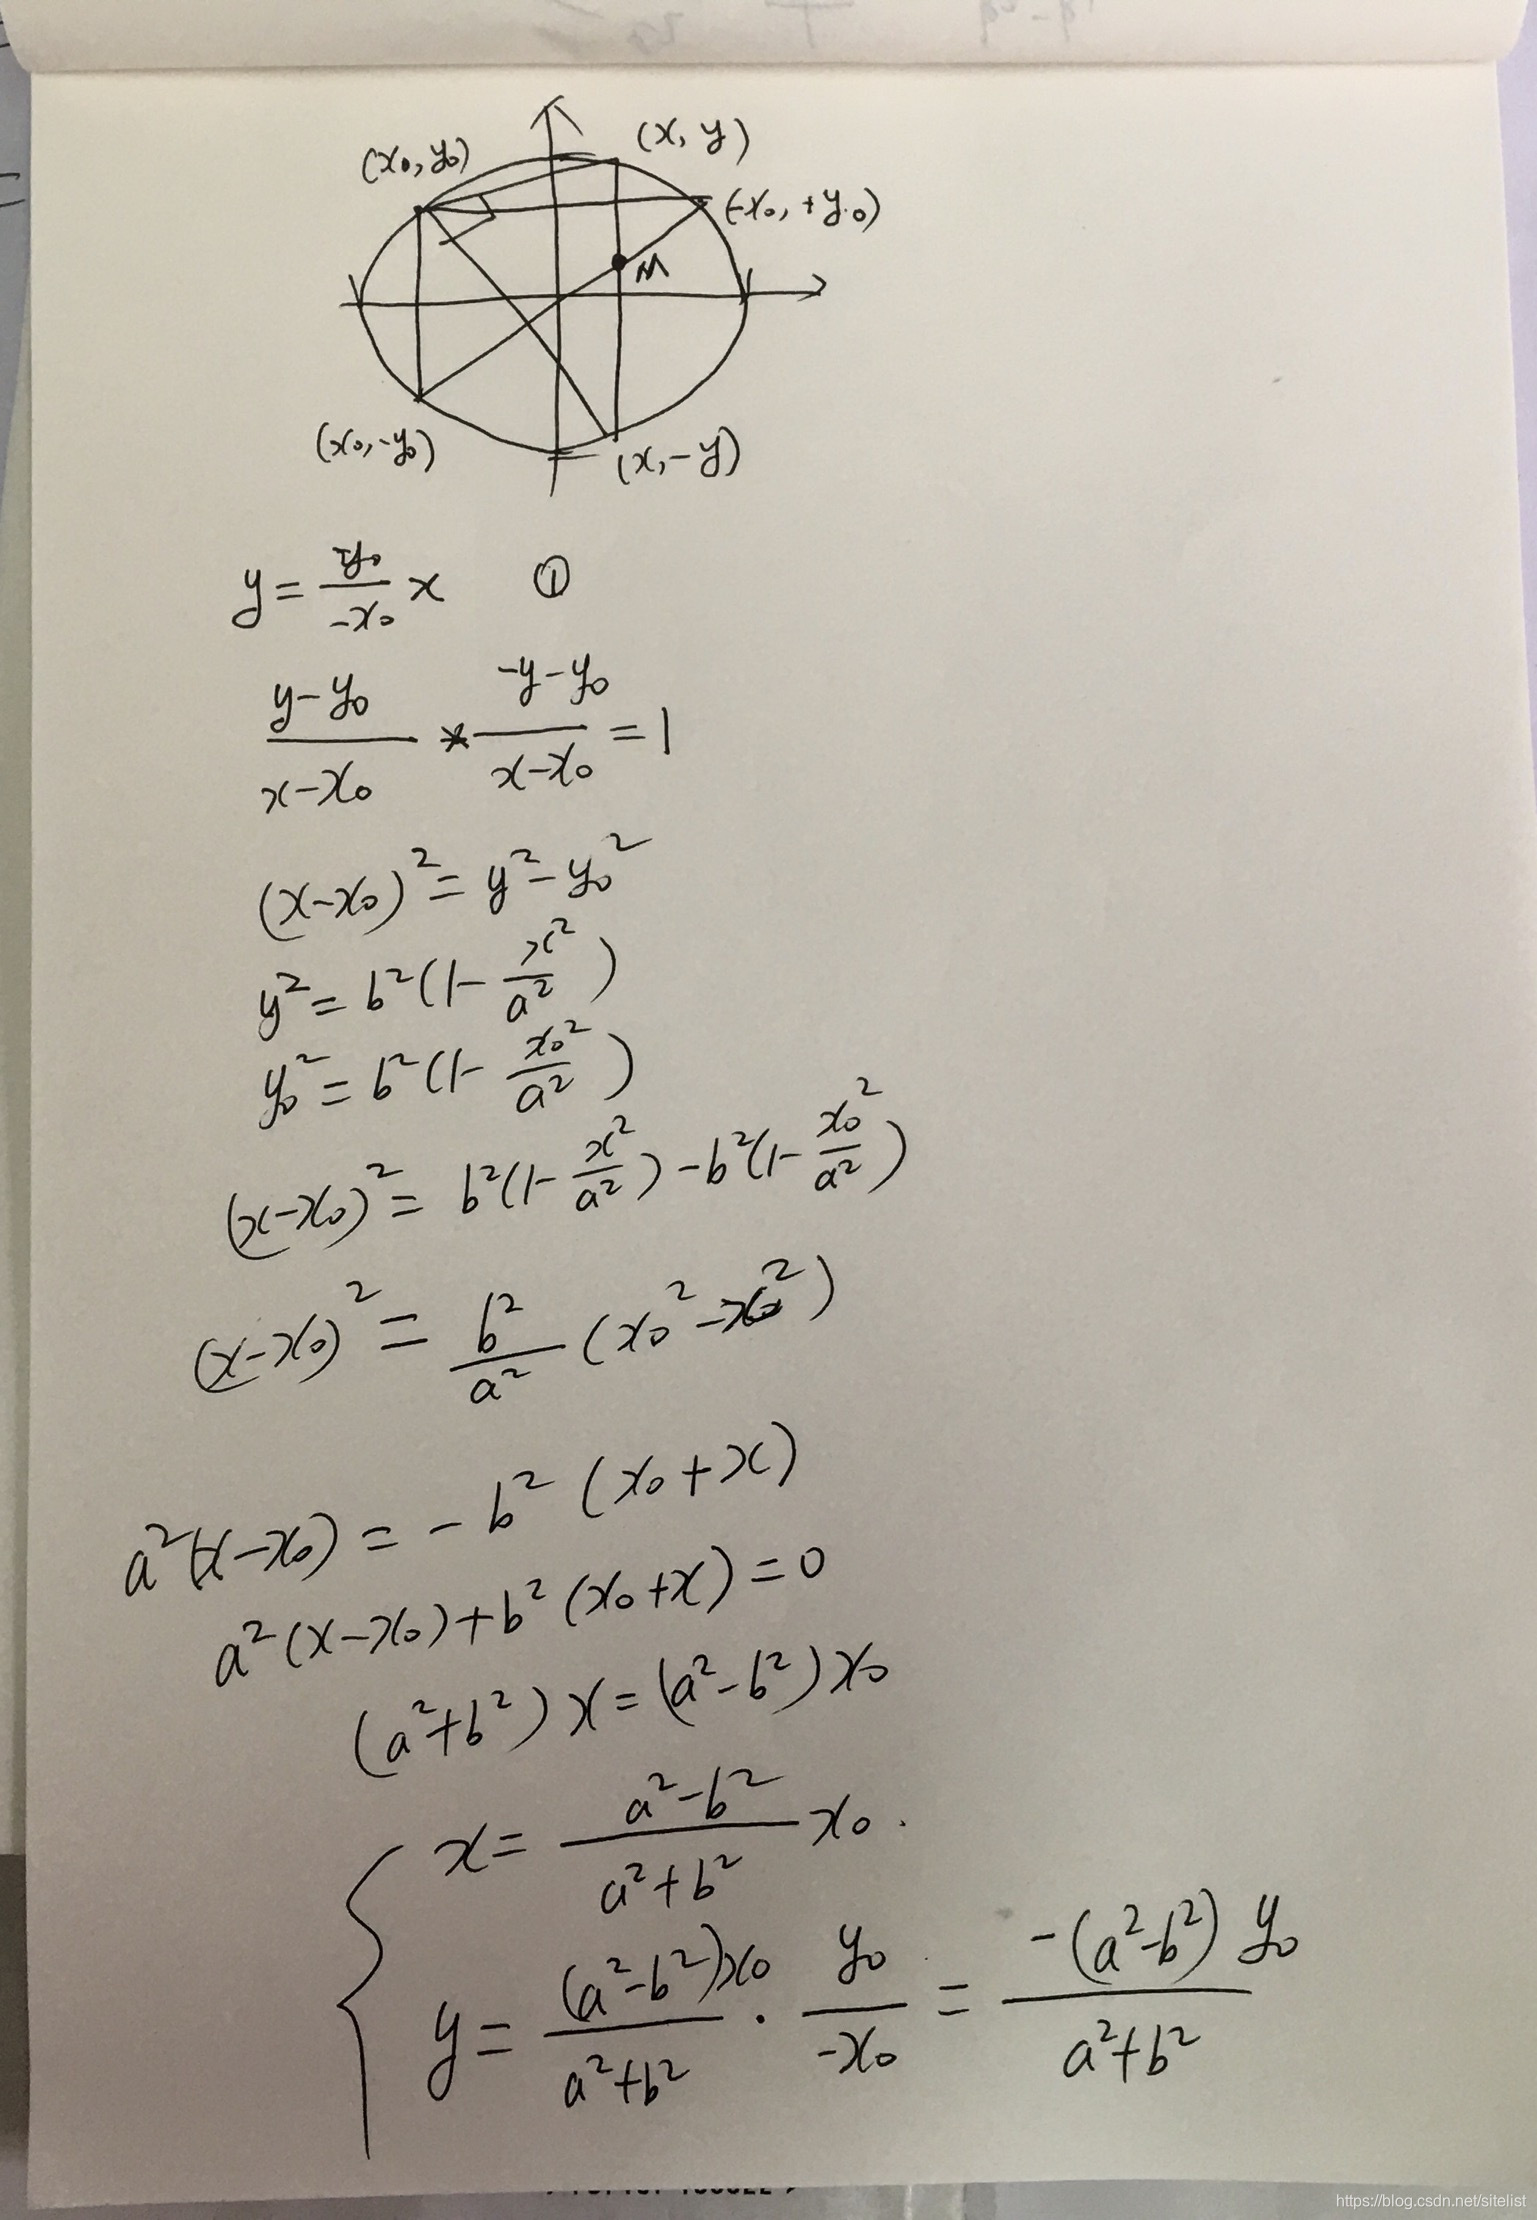 (x₀, y₀)
(x, y)
(-x₀, +y₀)
M
(x₀, -y₀)
(x, -y)
y = y₀/-x₀ x ①
(y-y₀)/(x-x₀) * (-y-y₀)/(x-x₀) = 1
(x-x₀)² = y² - y₀²
y² = b²(1 - x²/a²)
y₀² = b²(1 - x₀²/a²)
(x-x₀)² = b²(1 - x²/a²) - b²(1 - x₀²/a²)
(x-x₀)² = b²/a² (x₀² - x²)
a²(x-x₀) = -b² (x₀+x)
a²(x-x₀) + b²(x₀+x) = 0
(a²+b²) x = (a²-b²) x₀
x = (a²-b²)/(a²+b²) x₀.
y = (a²-b²)x₀/(a²+b²) · y₀/-x₀ = -(a²-b²) y₀/(a²+b²)
https://blog.csdn.net/sitelist